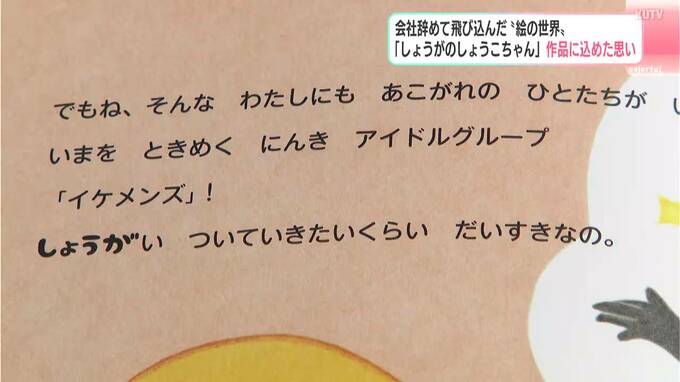 KUTV
会社辞めて飛び込んだ〝絵の世界〟
「しょうがのしょうこちゃん」作品に込めた思い
でもね、そんな　わたしにも　あこがれの　ひとたちが　い
いまを　ときめく　にんき　アイドルグループ
「イケメンズ」！
しょうがい　ついていきたいくらい　だいすきなの。